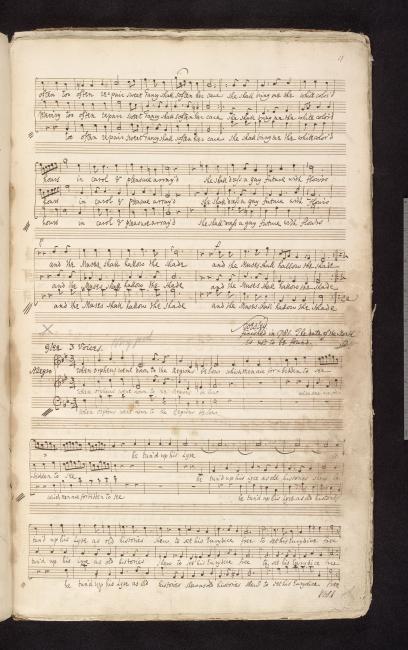 often too often repair sweet Fancy shall soften her care she shall bring me the white color'd
too often repair sweet Fancy shall soften her care she shall bring me the white color'd
too often repair sweet Fancy shall soften her care she shall bring me the white color'd
hours in carol & pleasure array'd she shall dress a gay future with flowers
hours in carol & pleasure array'd she shall dress a gay future with flowers
hours in carol & pleasure array'd she shall dress a gay future with flowers
and the Muses shall hallow the shade and the Muses shall hallow the shade
and the Muses shall hallow the shade and the Muses shall hallow the shade
and the Muses shall hallow the shade and the Muses shall hallow the shade
in 1781. The date of the
is not to be found.
Glee 3 Voices.
Allegro
when orpheus went down to the Regions below which men are forbidden to see
when orpheus went down to the Regions below
when orpheus went down to the Regions below
he tun'd up his Lyre
forbidden to see he tun'd up his Lyre as old histories shew
which men are forbidden to see he tun'd up his Lyre as old histories
tun'd up his Lyre as old histories shew to set his Eurydice free to set his Eurydice free
tun'd up his Lyre as old histories shew to set his Eurydice free to set his Eurydice free
he tun'd up his Lyre as old histories shew to set his Eurydice free